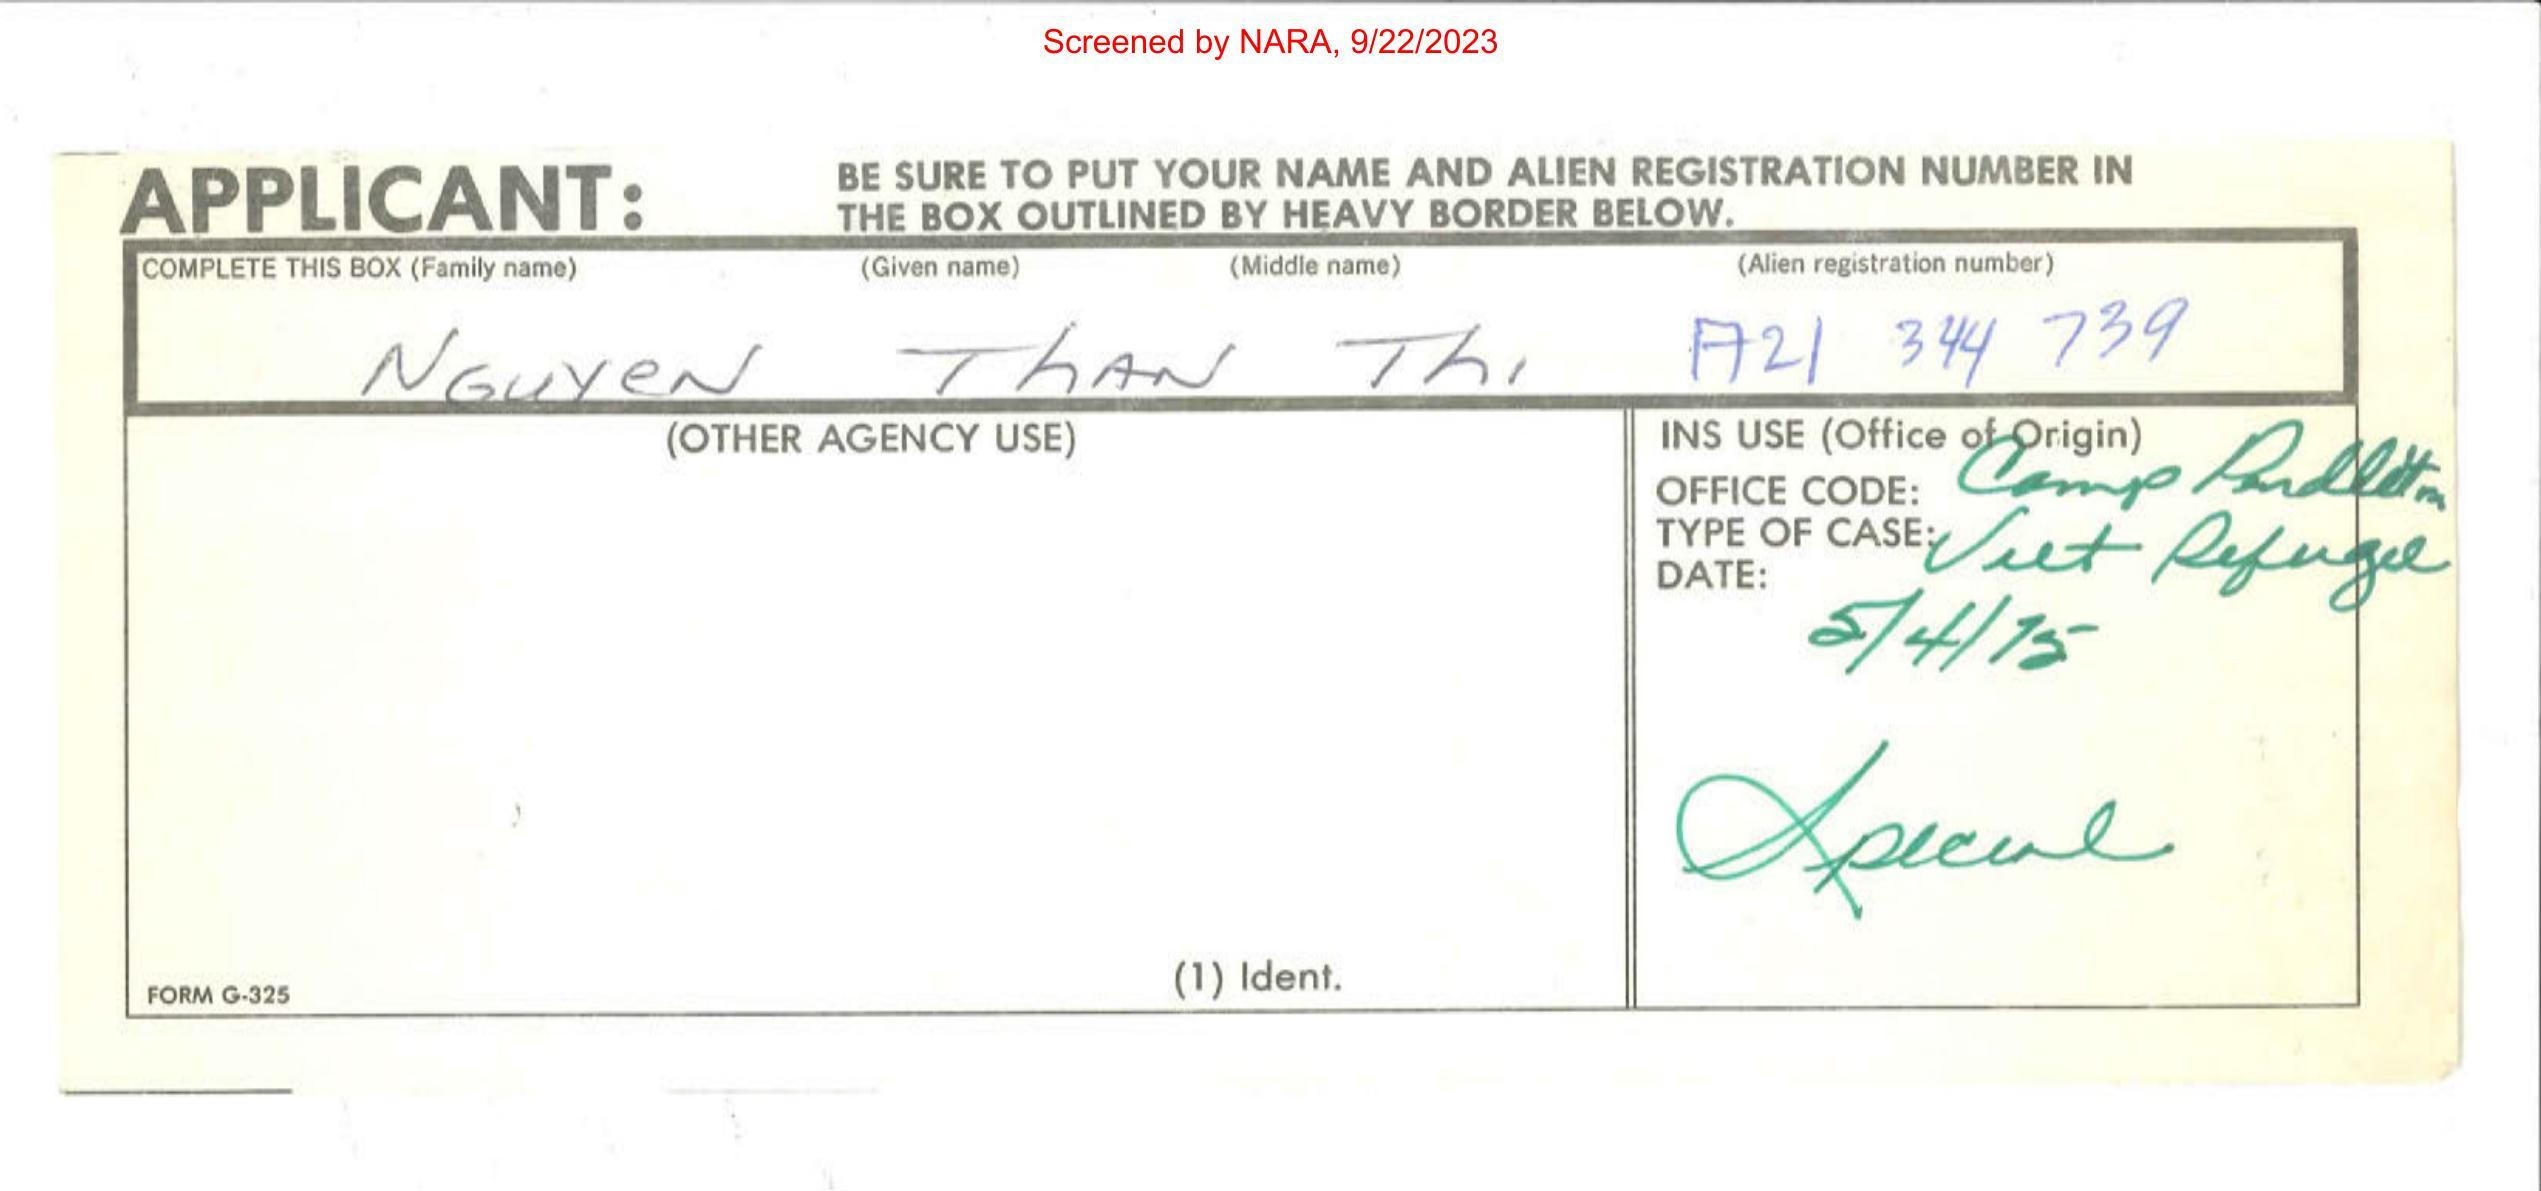 Screened by NARA, 9/22/2023
APPLICANT:
BE SURE TO PUT YOUR NAME AND ALIEN REGISTRATION NUMBER IN
THE BOX OUTLINED BY HEAVY BORDER BELOW.
COMPLETE THIS BOX (Family name) (Given name) (Middle name) (Alien registration number)
NGUYEN THAN Thi A21 344 739
(OTHER AGENCY USE)
INS USE (Office of Origin)
OFFICE CODE: Camp Pendleton
TYPE OF CASE: Viet Refugee
DATE:
5/4/75
Special
(1) Ident.
FORM G-325